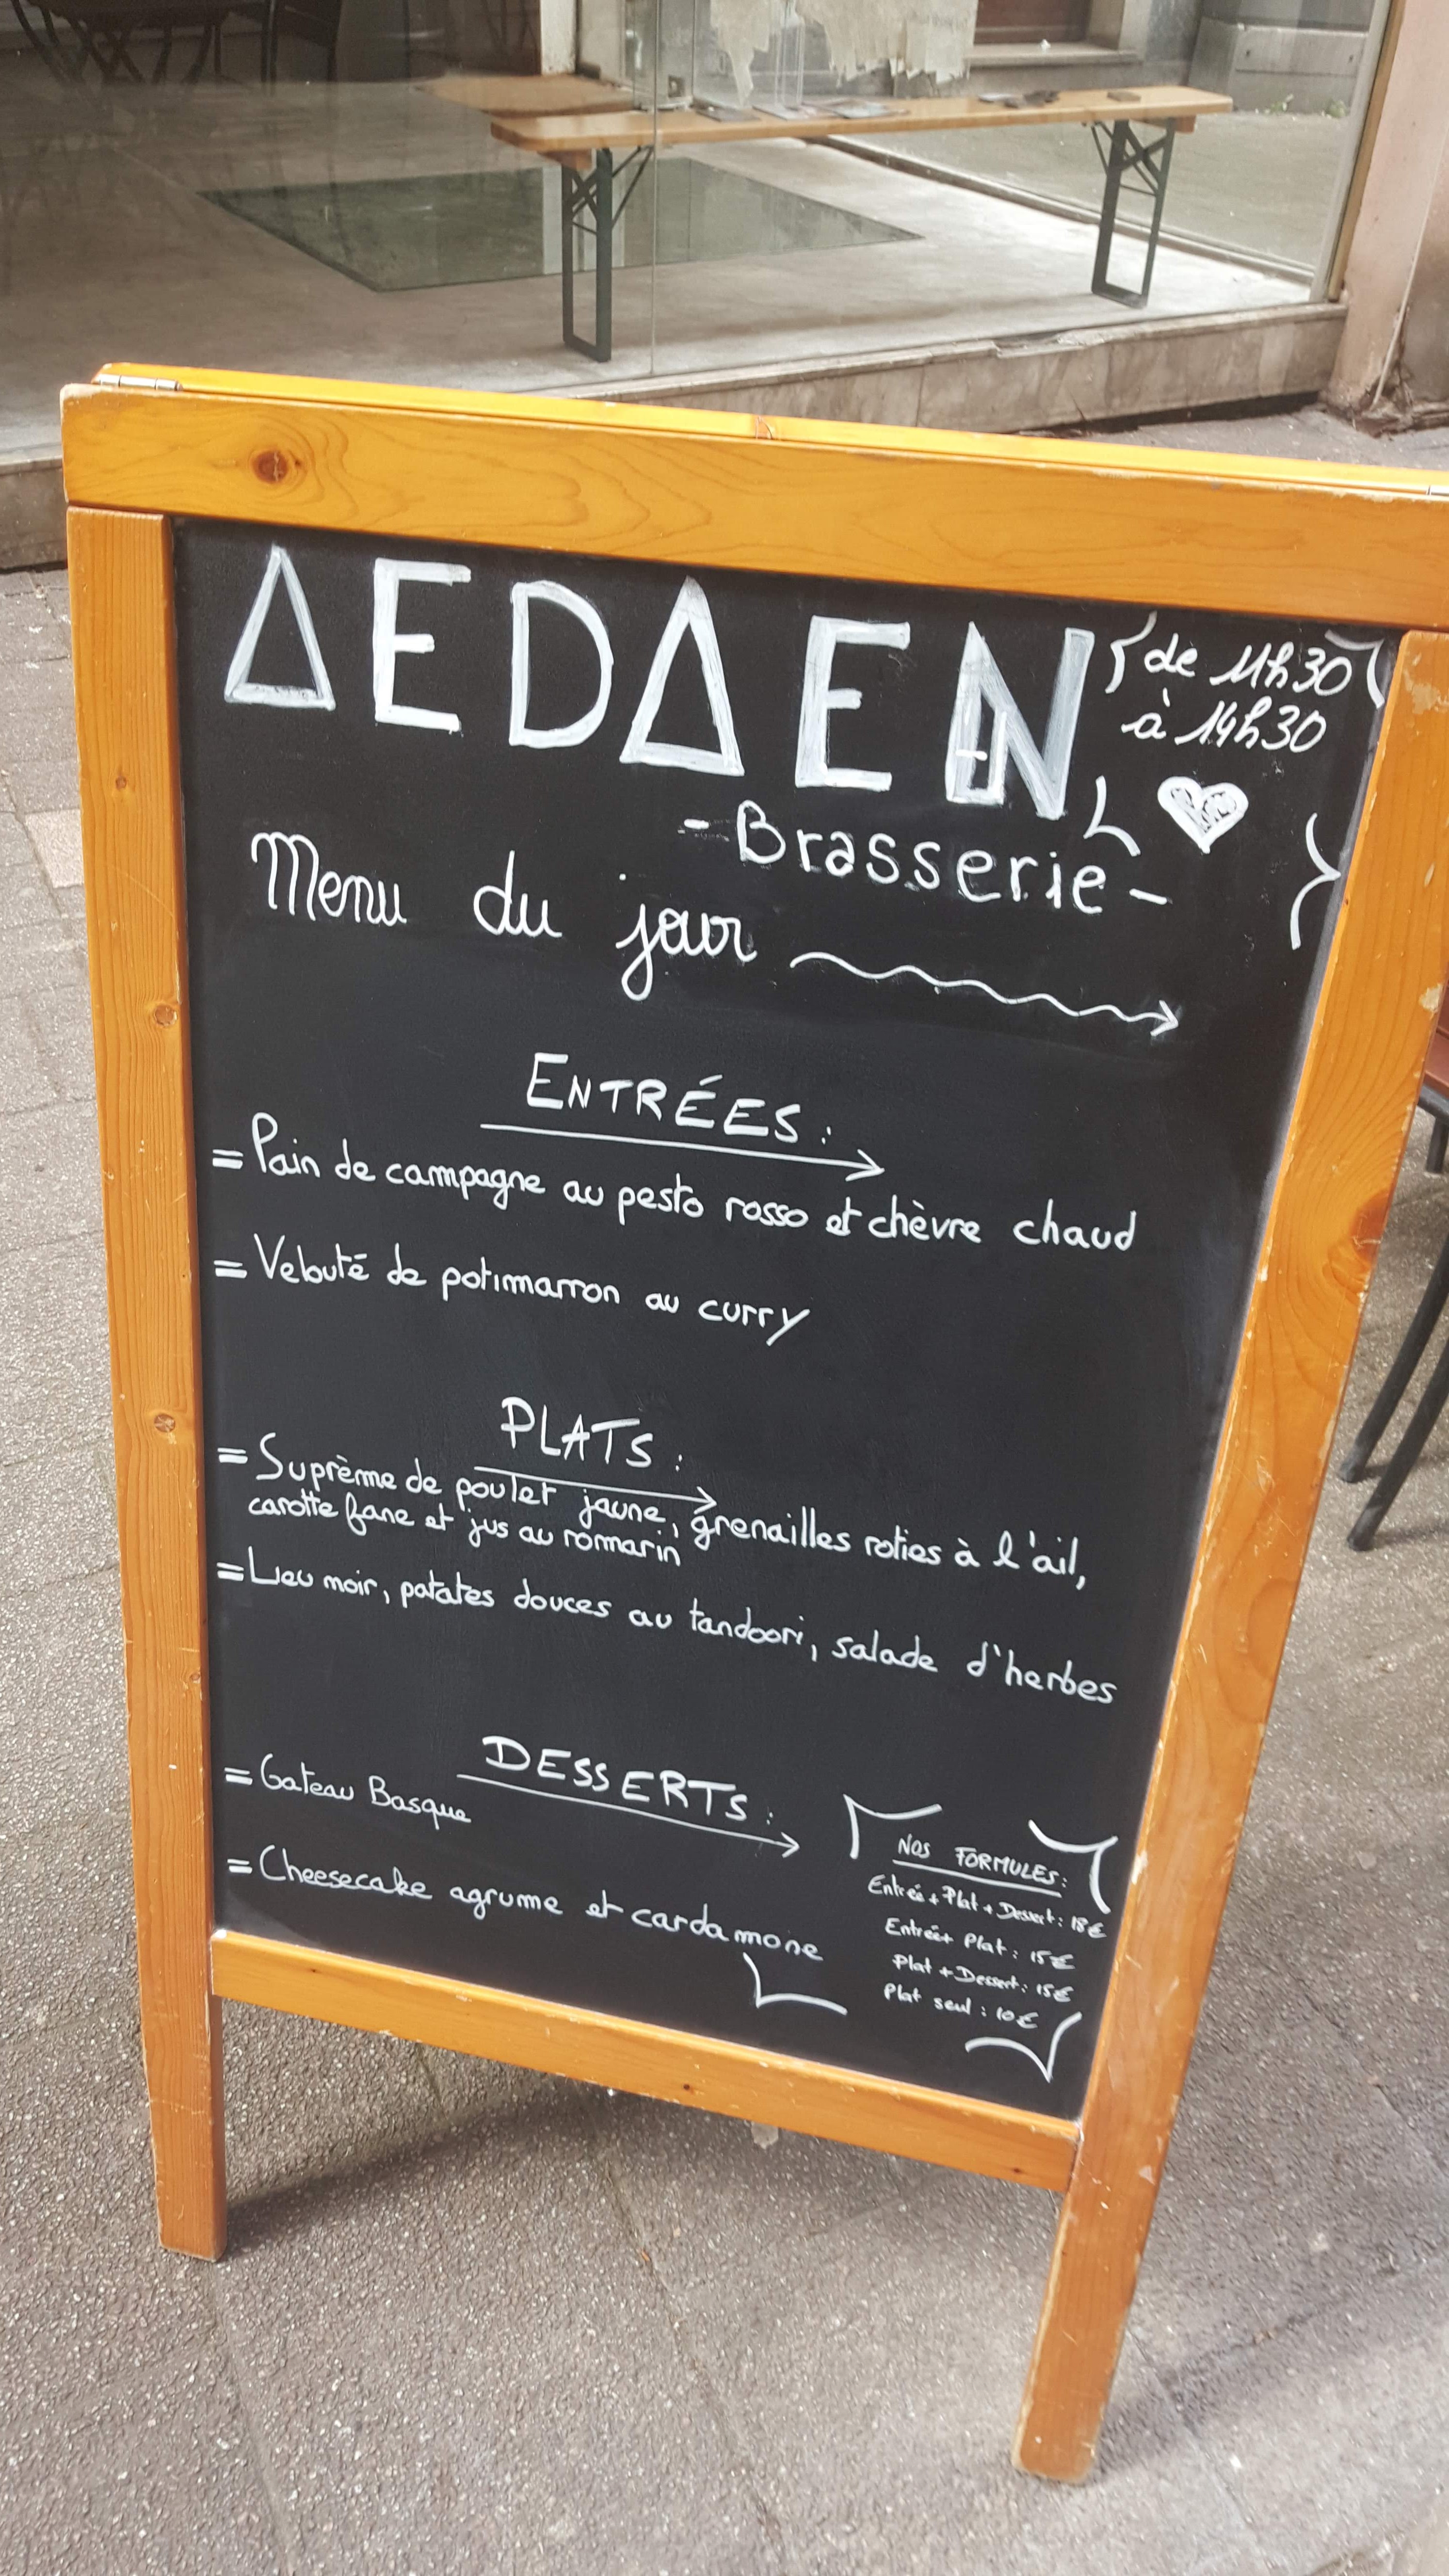 AEDAEN
de 11h30
à 14h30
- Brasserie -
Menu du jour
ENTRÉES :
= Pain de campagne au pesto rosso et chèvre chaud
= Velouté de potimarron au curry
PLATS :
= Suprème de poulet jaune, grenailles roties à l'ail,
carotte fane et jus au romarin
= Lieu noir, patates douces au tandoori, salade d'herbes
DESSERTS :
= Gateau Basque
= Cheesecake agrume et cardamone
NOS FORMULES :
Entrée + Plat + Dessert : 18€
Entrée + Plat : 15€
Plat + Dessert : 15€
Plat seul : 10€